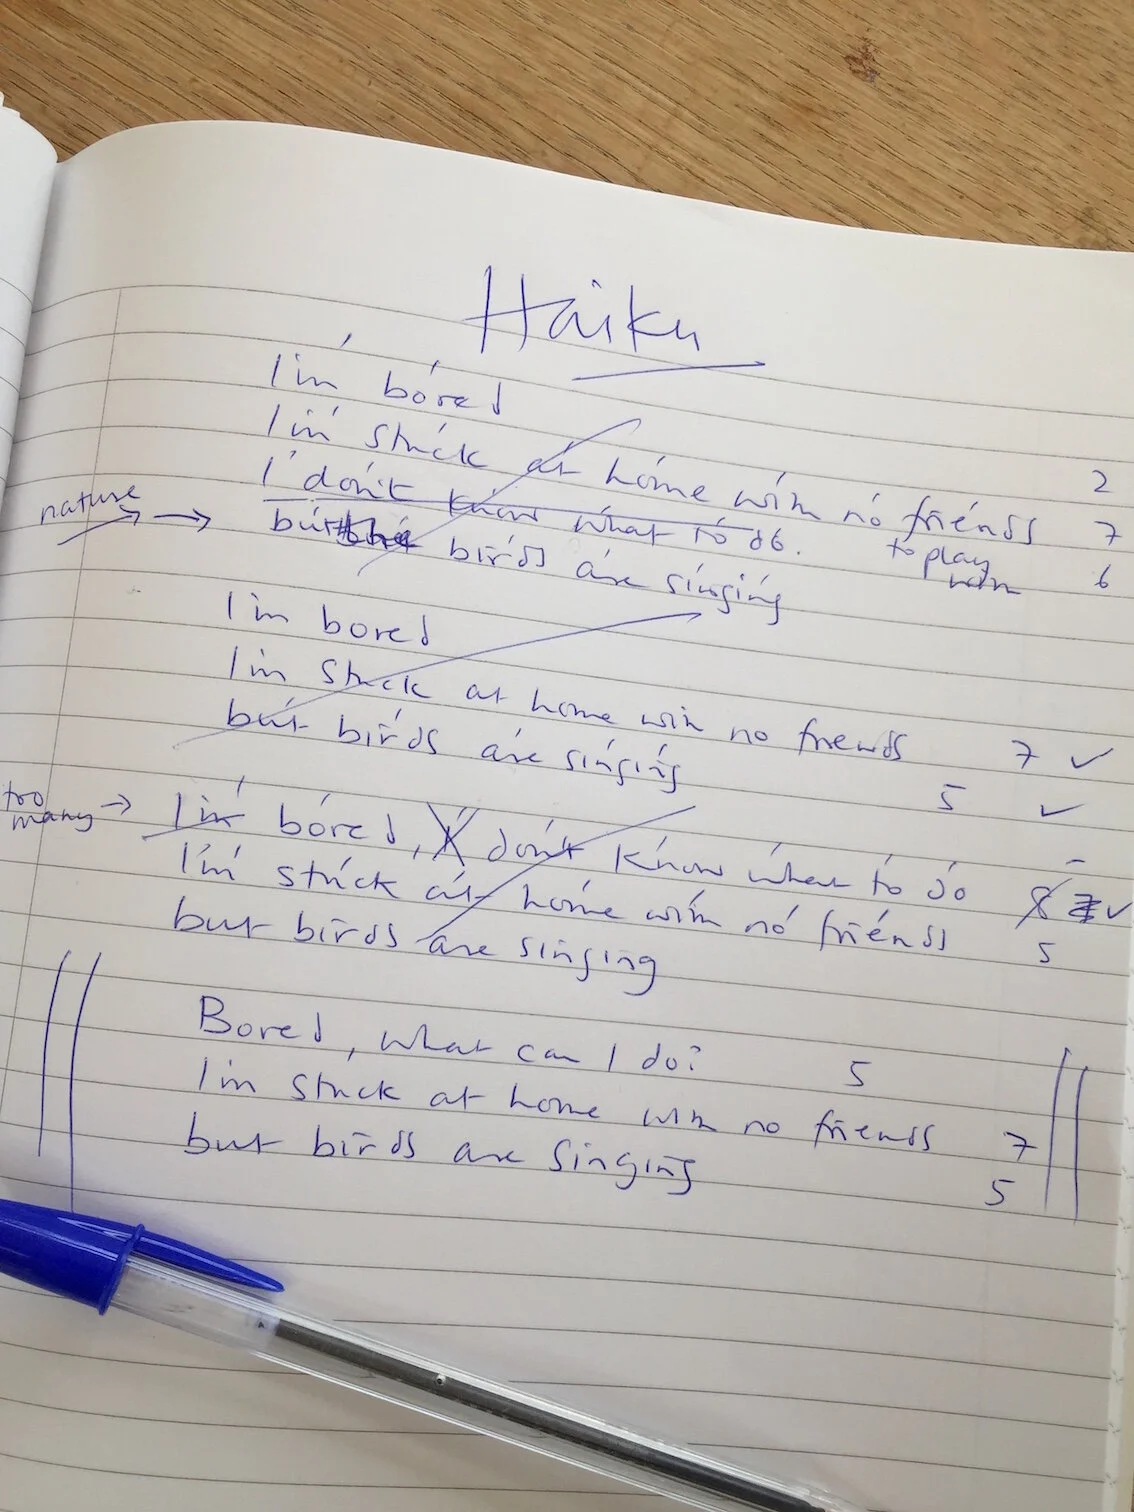 Haiku
I'm bored
I'm stuck at home with no friends 2
I don't know what to do. to play with 7
nature → but the birds are singing 6
I'm bored
I'm stuck at home with no friends 7 ✓
but birds are singing 5 ✓
too many → I'm bored, I don't know what to do
I'm stuck at home with no friends 8 7 ✓
but birds are singing 5
Bored, what can I do? 5
I'm stuck at home with no friends 7
but birds are singing 5